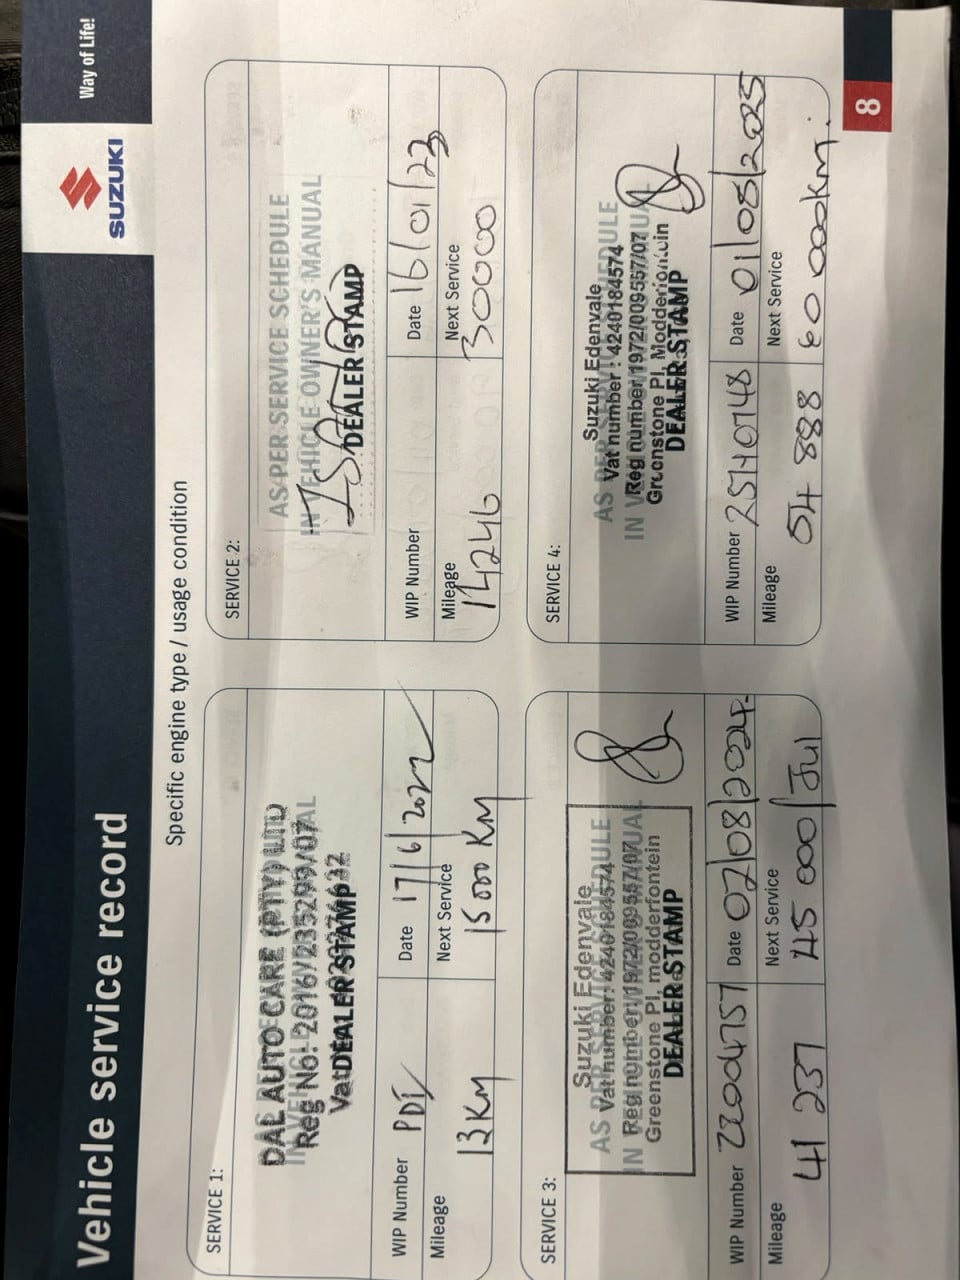 Vehicle service record
SUZUKI
Way of Life!
Specific engine type / usage condition
SERVICE 1:
DAL AUTO CARE (PTY) LTD
Reg No: 2016/235299/07
DEALER STAMP
WIP Number PDI
Date 17/6/2022
Mileage
13 Km
Next Service
15 000 Km
SERVICE 2:
AS PER SERVICE SCHEDULE
IN VEHICLE OWNER'S MANUAL
DEALER STAMP
WIP Number
Date 16/01/23
Mileage
14246
Next Service
30000
SERVICE 3:
AS PER SERVICE SCHEDULE
Suzuki Edenvale
Vat number: 4240184574
Reg number: 1972/009557/07
Greenstone Pl, modderfontein
DEALER STAMP
WIP Number
Date 02/08/2024.
Mileage
41 237
Next Service
45 000 / Jul
SERVICE 4:
Suzuki Edenvale
Vat number : 4240184574
Reg number 1972/009557/07
Greenstone Pl, Modderfontein
DEALER STAMP
WIP Number
Date 01/08/2025
Mileage
54 888
Next Service
60 000km.
8